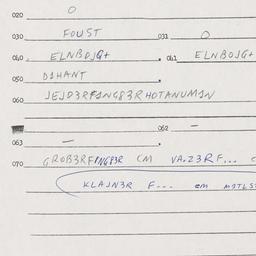 020 O
030 FOUST 031 O
040 ELNBOJG+ 041 ELNBOJG+
050 D1HANT
060 JEJD3RF1NG83R HOTANUM1N
062 –
063 –
070 GROB3RF1NG83R CM VA.Z3RF...
KLAJN3R F... em